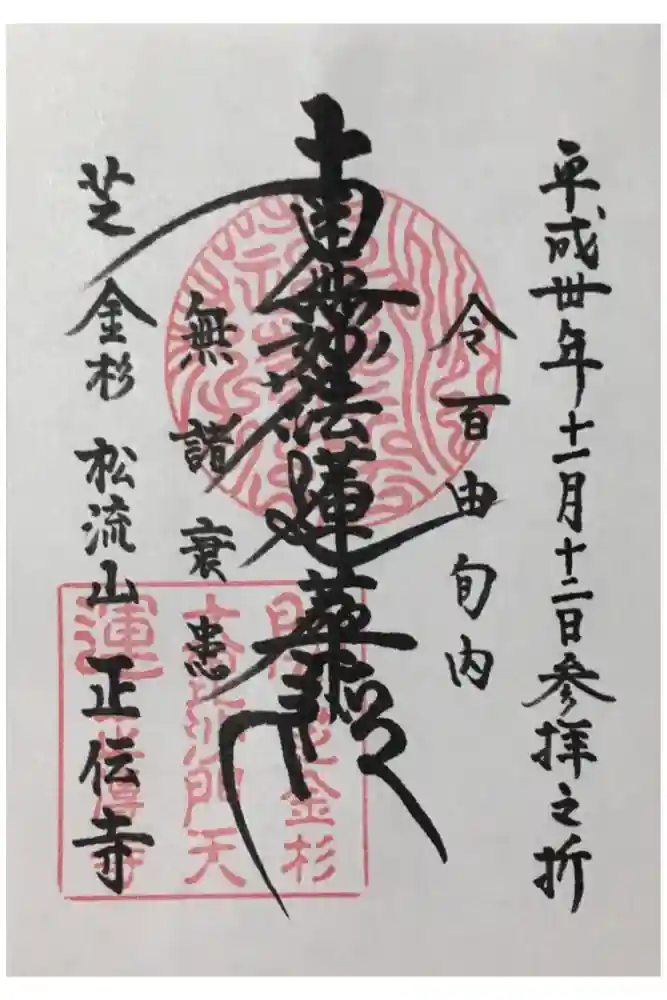 平成丗年十一月十二日参拝之折
令百由旬内
南無妙法蓮華経
無諸衰患
芝金杉 松流山 正伝寺
開運
大毘沙門天
芝金杉
正傳寺